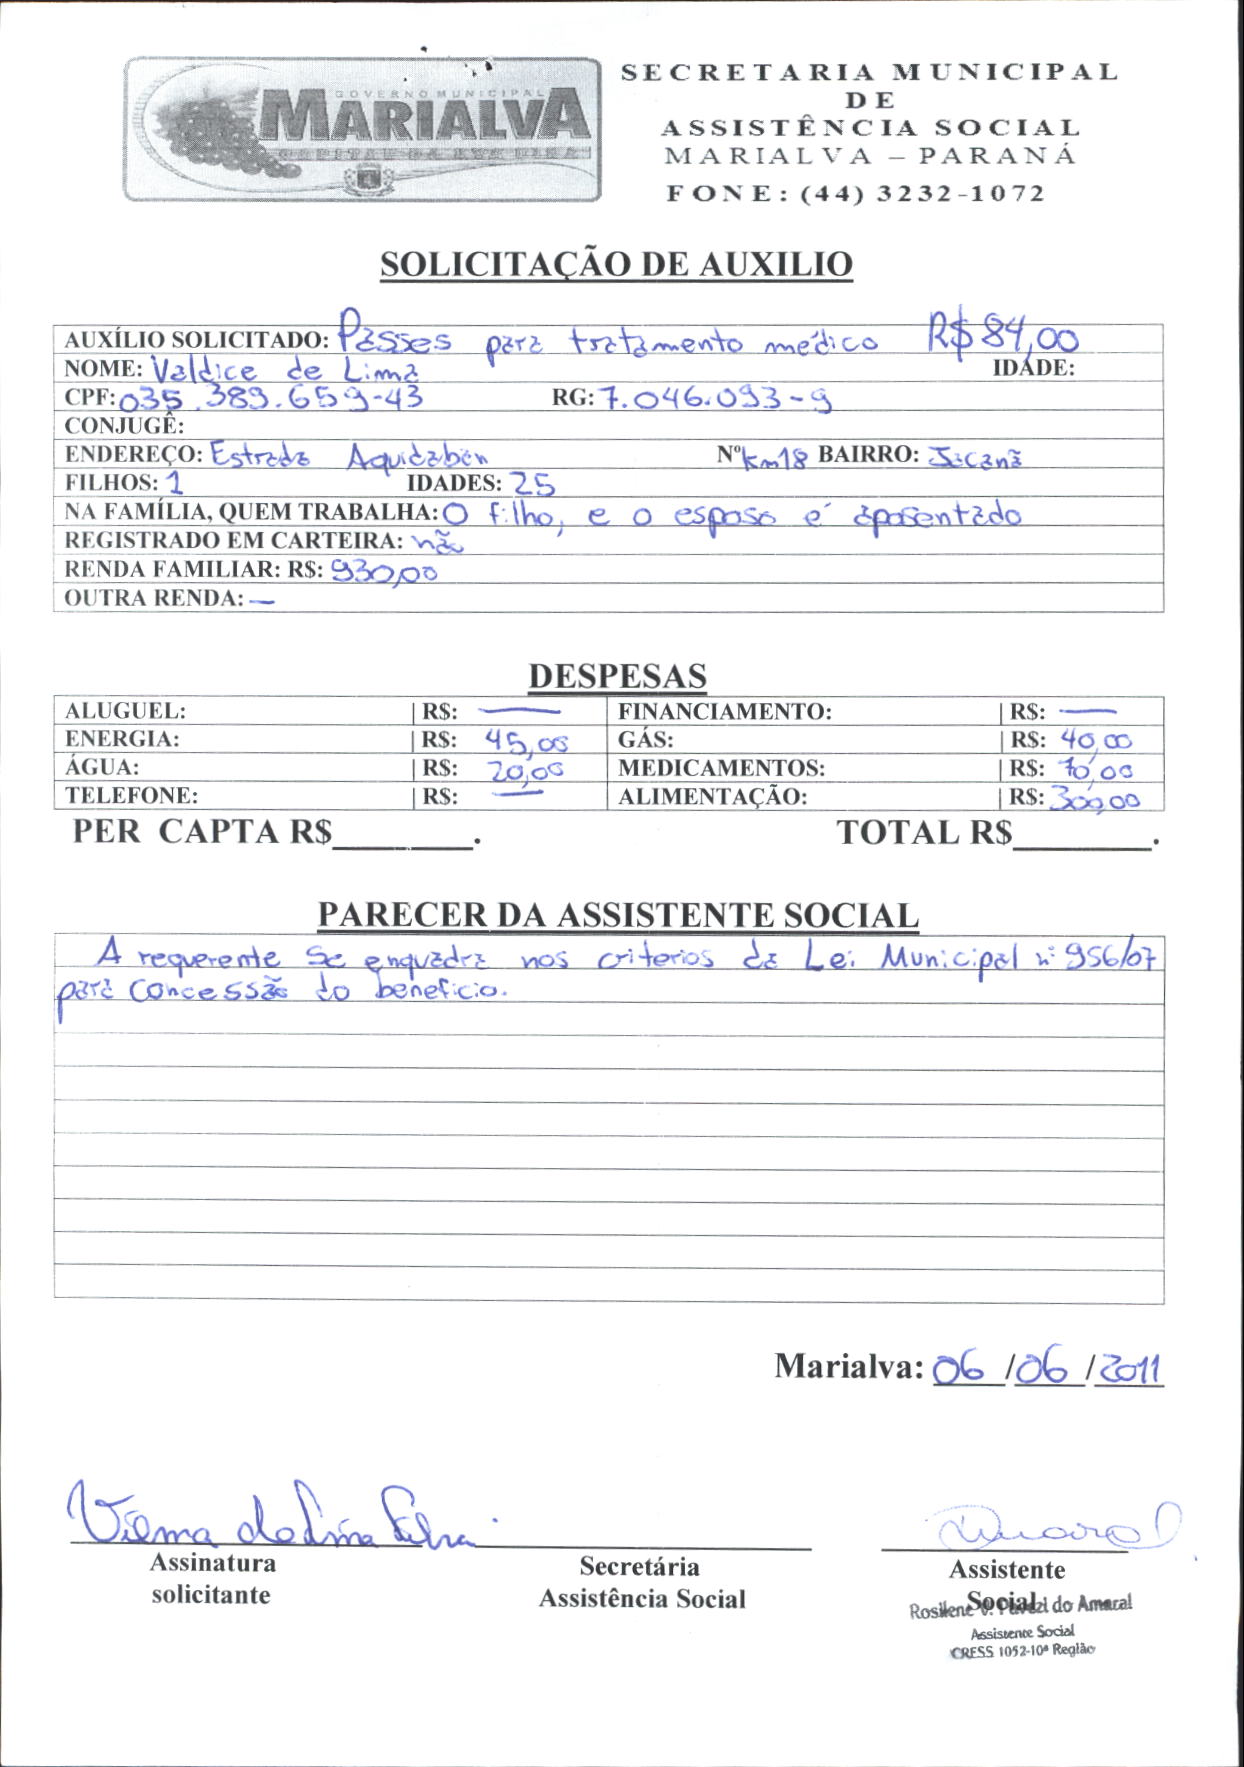 GOVERNO MUNICIPAL
MARIALVA
CAPITAL DA UVA FINA
SECRETARIA MUNICIPAL
DE
ASSISTÊNCIA SOCIAL
MARIALVA – PARANÁ
FONE: (44) 3232-1072
SOLICITAÇÃO DE AUXILIO
AUXÍLIO SOLICITADO: Passes para tratamento médico R$ 84,00
NOME: Valdice de Lima IDADE:
CPF: 035.389.659-43 RG: 7.046.093-9
CONJUGÊ:
ENDEREÇO: Estrada Aquidaban Nº Km18 BAIRRO: Jacanã
FILHOS: 1 IDADES: 25
NA FAMÍLIA, QUEM TRABALHA: O filho, e o esposo é aposentado
REGISTRADO EM CARTEIRA: não
RENDA FAMILIAR: R$: 930,00
OUTRA RENDA: —
DESPESAS
ALUGUEL: | R$: — FINANCIAMENTO: | R$: —
ENERGIA: | R$: 45,00 GÁS: | R$: 40,00
ÁGUA: | R$: 20,00 MEDICAMENTOS: | R$: 70,00
TELEFONE: | R$: — ALIMENTAÇÃO: | R$: 300,00
PER CAPTA R$________. TOTAL R$________.
PARECER DA ASSISTENTE SOCIAL
A requerente se enquadra nos criterios da Lei Municipal nº 956/07
para concessão do beneficio.
Marialva: 06/06/2011
Vilma de Lima
Assinatura Secretária Assistente
solicitante Assistência Social Social
Rosilene V. Pavezi do Amaral
Assistente Social
CRESS 1052-10ª Região